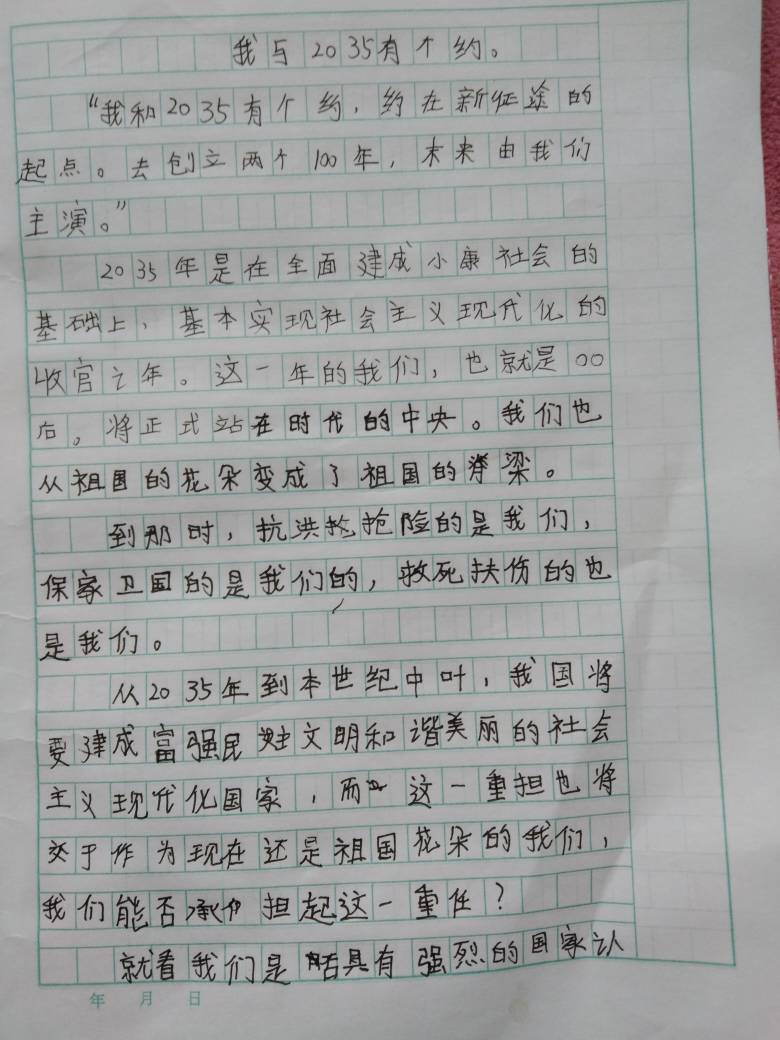 我与2035有个约。
“我和2035有个约，约在新征途的
起点。去创立两个100年，未来由我们
主演。”
2035年是在全面建成小康社会的
基础上、基本实现社会主义现代化的
收官之年。这一年的我们，也就是00
后。将正式站在时代的中央。我们也
从祖国的花朵变成了祖国的脊梁。
到那时，抗洪抢险的是我们，
保家卫国的是我们的，救死扶伤的也
是我们。
从2035年到本世纪中叶，我国将
要建成富强民主文明和谐美丽的社会
主义现代化国家，而这一重担也将
交于作为现在还是祖国花朵的我们，
我们能否承担起这一重任？
就看我们是否具有强烈的国家认
年 月 日